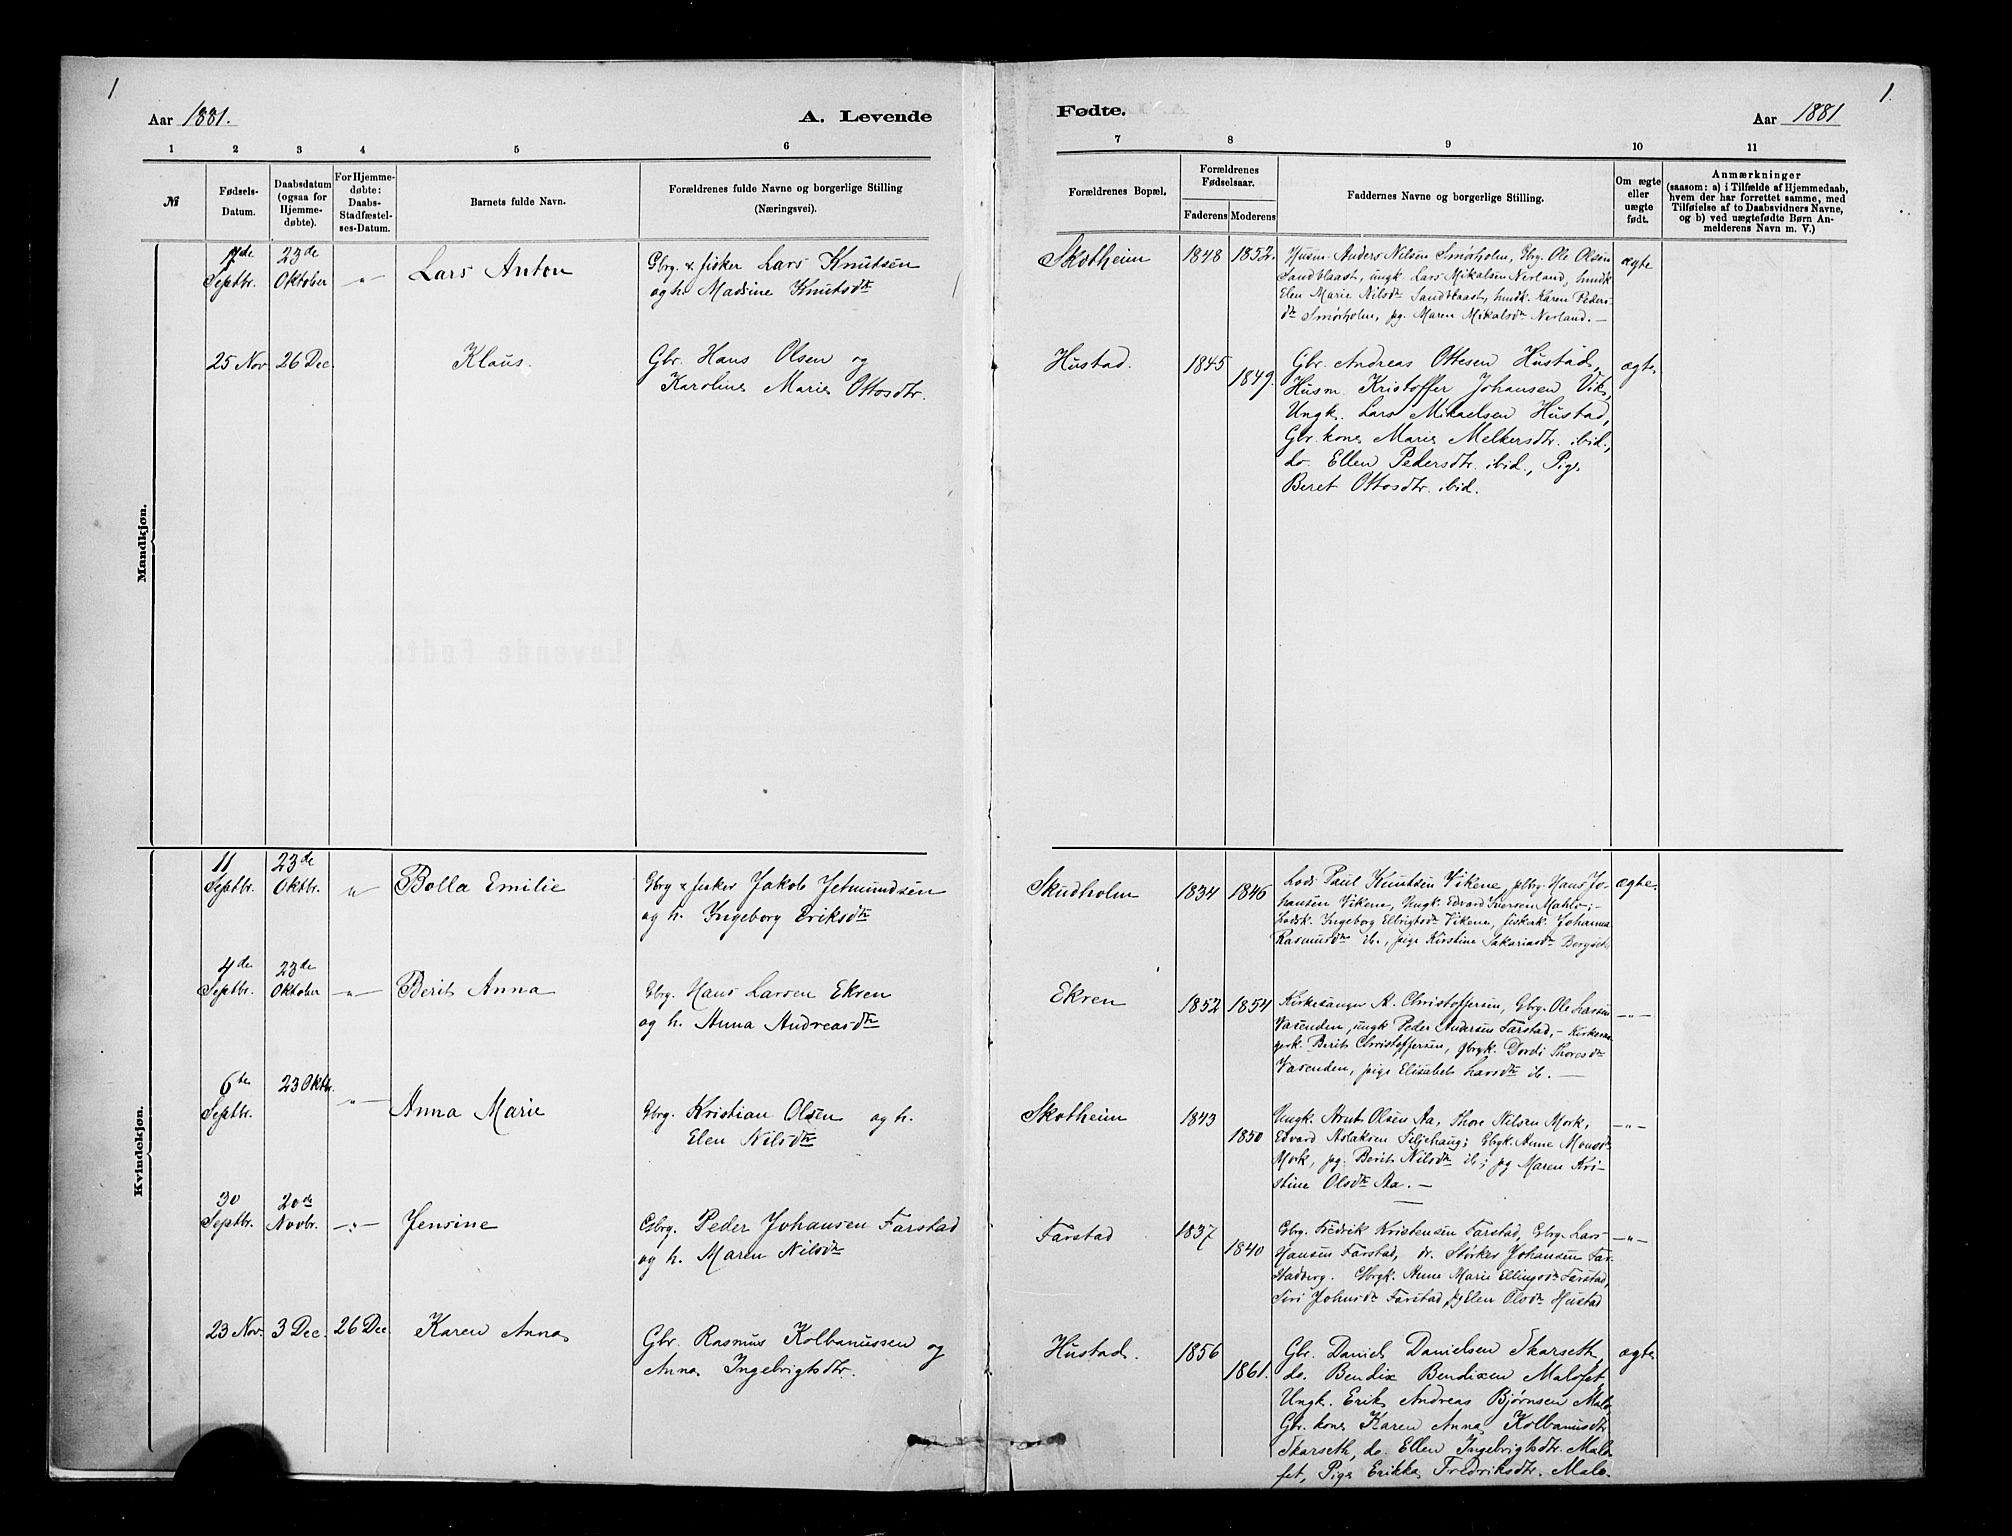 1
Aar 1881.
A. Levende
1 2 3 4 5 6
№
Fødsels-
Datum.
Daabsdatum
(ogsaa for
Hjemme-
døbte).
For Hjemme-
døbte:
Daabs-
Stadfæstel-
ses-Datum.
Barnets fulde Navn.
Forældrenes fulde Navne og borgerlige Stilling
(Næringsvei).
Mandkjøn.
Septbr.
23de
Oktober
"
Lars Anton
Gbrg. & fisker Lars Knutsen
og h. Madsine Knutsdtr
25 Nov.
26 Dec.
Klaus.
Gbr. Hans Olsen og
Karoline Marie Ottosdtr.
Kvindekjøn.
11
Septbr.
23de
Oktbr.
"
Bolla Emilie
Gbrg & fisker Jakob Jetmundsen
og h. Ingeborg Eriksdtr
4de
Septbr.
23de
Oktober
—"—
Berit Anna
Gbrg. Hans Larsen Ekren
og h. Anna Andreasdtr
6te
Septbr.
23 Oktbr.
—"—
Anna Marie
Gbrg. Kristian Olsen og h.
Elen Nilsdtr
30
Septbr.
20de
Novbr.
—"—
Jensine
Gbrg. Peder Johansen Farstad
og h. Maren Nilsdtr
23 Nov.
3 Dec.
26 Dec.
Karen Anna
Gbr. Rasmus Kolbanussen og
Anna Ingebrigtsdtr.
1.
Fødte.
Aar 1881
7 8 9 10 11
Forældrenes Bopæl.
Forældrenes
Fødselsaar.
Faderens Moderens
Faddernes Navne og borgerlige Stilling.
Om ægte
eller
uægte
født.
Anmærkninger
(saasom: a) i Tilfælde af Hjemmedaab,
hvem der har forrettet samme, med
Tilføielse af to Daabsvidners Navne,
og b) ved uægtefødte Børn An-
melderens Navn m. V.)
Skotheim
1848
1852.
Husm. Anders Nilsen Smørholm, Gbrg. Ole Olsen
Sandblaast, ungk. Lars Mikalsen Nerland, hmdk
Elen Marie Nilsdtr Sandblaast, hmdk. Karen Peders-
dtr Smørholm, pg. Maren Mikalsdtr Nerland. —
ægte
Hustad.
1845
1849.
Gbr. Andreas Ottesen Hustad,
Husm. Kristoffer Johansen Vik,
Ungk. Lars Mikaelsen Hustad,
Gbr. kone Marie Melkersdtr. ibid.,
do. Ellen Pedersdtr. ibid., Pige
Beret Ottosdtr. ibid.
ægte
Skudholm
1834
1846
Lods Paul Knutsen Vikene, Hans Jo-
hansen Vikene, Ungk. Edvard Iversen
Lodsk. Ingeborg Vikene, fiskerk. Johanna
Rasmusdtr ib., pige Kirstine Sakariasdtr
ægte.
Ekren
1852
1854
Kirkesanger A. Christoffersen, Gbrg. Ole Larsen
Vasenden, ungk Peder Andersen Farstad, — Kirkesan-
gerk. Berit Christoffersen, gbrgk. Dordi Thoresdtr
Vasenden, pige Elisabet Larsdtr ib. —
—"—
Skotheim
1843
1850
Ungk. Arnt Olsen Aa, Thore Nilsen Mork,
Edvard Aslaksen Gbrgk. Anne Monsdtr
Mork, pg. Berit Nilsdtr ib; pg Maren Kri-
stine Olsdtr Aa. —
—"—
Farstad
1837
1840
Gbrg. Fredrik Kristensen Farstad, Gbrg. Lars
Hansen Farstad, dr. Størker Johansen Far-
stadberg. Gbrgk. Anne Marie Ellingsdtr Farstad,
Siri Johnsdtr Farstad, pg Elen Olsdtr Hustad
—"—
Hustad.
1856
1861.
Gbr. Daniel Danielsen Skarseth,
do. Bendix Bendixen Malefet,
Ungk. Erik Andreas Bjørnsen Male.
Gbr. kone Karen Anna Kolbanusdtr
Skarseth, do. Ellen Ingebrigtsdtr. Male-
fet, Pige Erikka Fredriksdtr. Male.
ægte